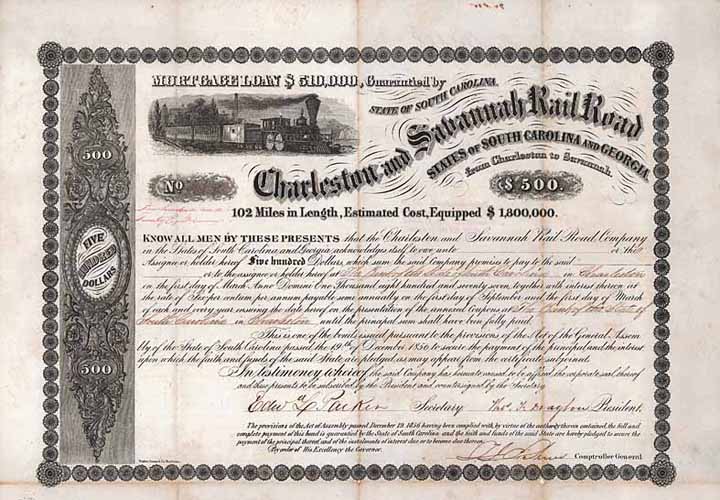 MORTGAGE LOAN $ 510,000, Guarantied by
STATE OF SOUTH CAROLINA.
Charleston and Savannah Rail Road
STATES OF SOUTH CAROLINA AND GEORGIA,
from Charleston to Savannah.
No
$ 500.
102 Miles in Length, Estimated Cost, Equipped $ 1,800,000.
500
FIVE
HUNDRED
DOLLARS
500
KNOW ALL MEN BY THESE PRESENTS that the Charleston and Savannah Rail Road Company
in the States of South Carolina and Georgia acknowledges itself to owe unto or the
Assignee or holder hereof Five hundred Dollars which sum the said Company promises to pay to the said
or to the assignee or holder hereof at The Bank of the State of South Carolina in Charleston
on the first day of March Anno Domini One Thousand eight hundred and seventy seven, together with interest thereon at
the rate of Six per centum per annum payable semi annually on the first day of September and the first day of March
of each and every year ensuing the date hereof on the presentation of the annexed Coupons at The Bank of the State of
South Carolina in Charleston until the principal sum shall have been fully paid.
This is one of the bonds issued pursuant to the provisions of the Act of the General Assem
bly of the State of South Carolina passed the 19th December 1856 to secure the payment of the principal and the interest
upon which the faith and funds of the said State are pledged, as may appear from the certificate subjoined.
In testimony whereof the said Company has hereunto caused to be affixed the corporate seal thereof
and these presents to be subscribed by the President and countersigned by the Secretary.
Edw. L. Parker Secretary Thos. F. Drayton President.
The provisions of the Act of Assembly passed December 19. 1856 having been complied with, by virtue of the authority therein contained, the full and
complete payment of this bond is guarantied by the State of South Carolina and the faith and funds of the said State are hereby pledged to secure the
payment of the principal thereof, and of the instalments of interest due or to become due thereon.
By order of His Excellency the Governor.
Comptroller General